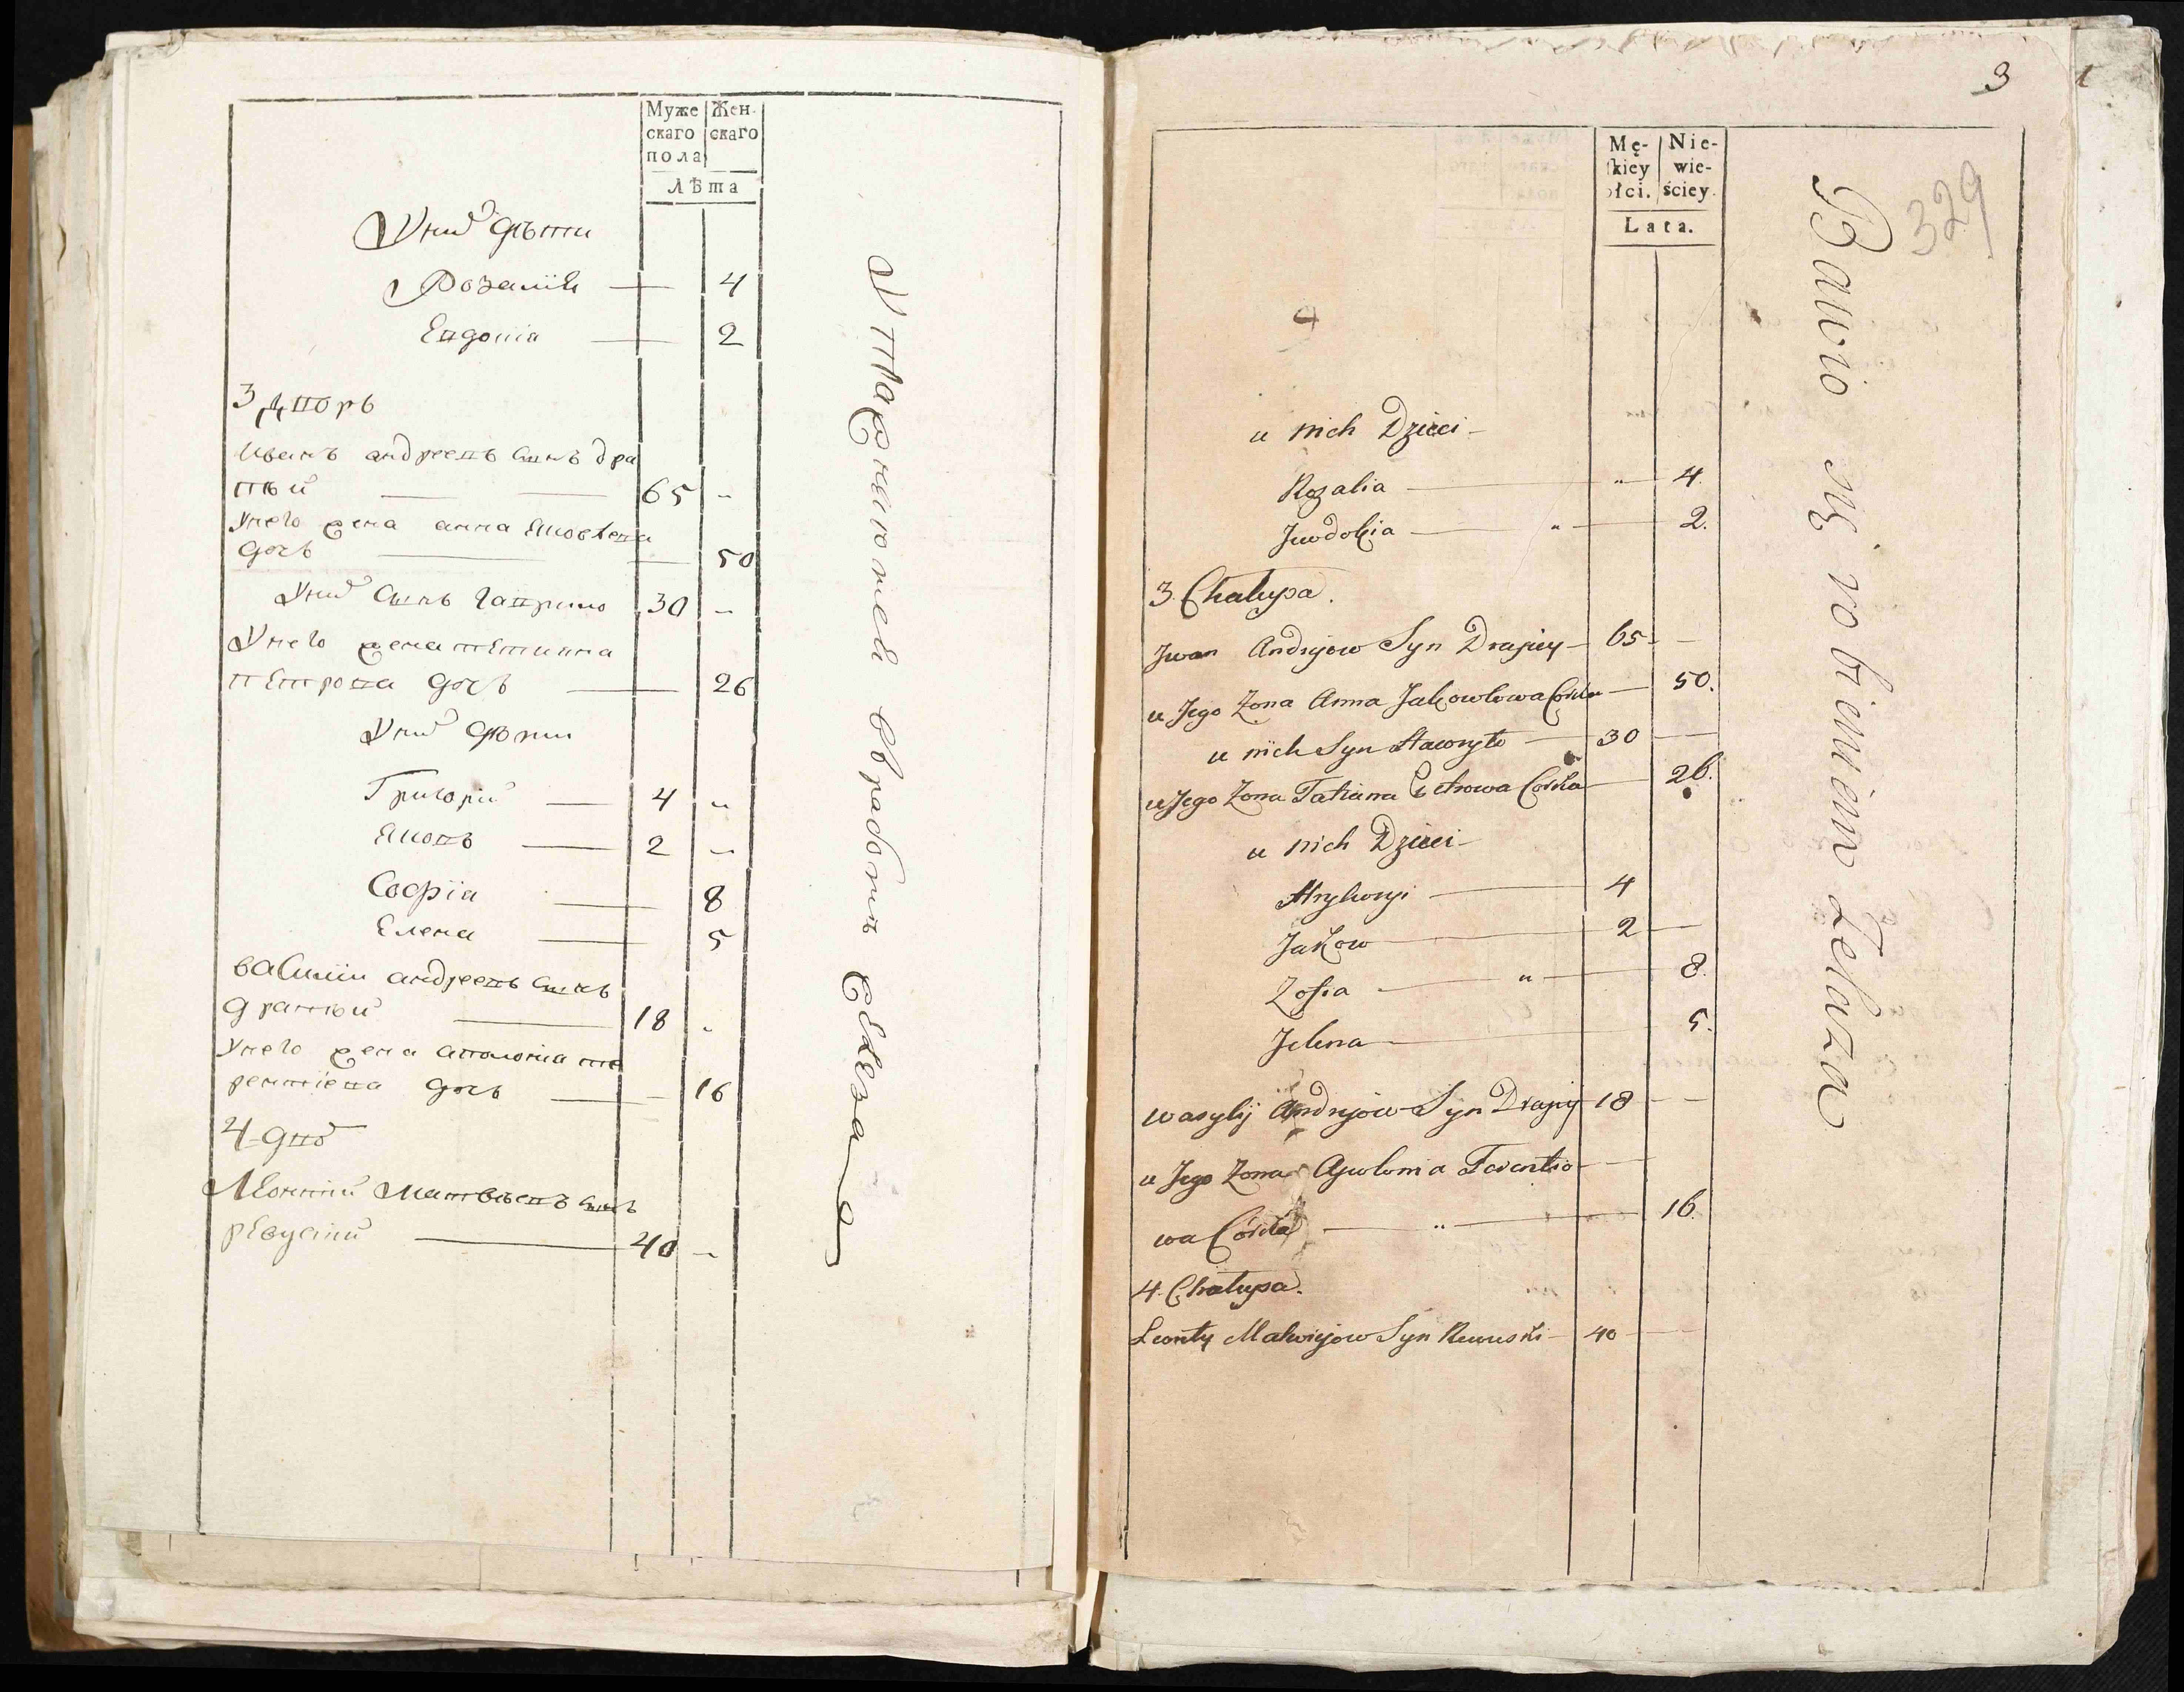 Муже Жен.
скаго скаго
пола
Лѣта
Унихъ дѣти
Розалія — 4
Евдокіа — 2
3 дворъ
Иванъ андреевъ сынъ дра
пѣй — — 65 -
Унего жена анна Яковлева
дочь — 50
Унихъ сынъ Гаврило 30 -
Унего жена тетиана
пЕтрова дочь — 26
Унихъ дѣти
Григорій — 4 "
Яковъ — 2 -
Софіа — 8
Елена — 5
василій андреевъ сынъ
драпѣй — 18 "
Унего жена аполоніа те
рентіева дочь — - 16
4 дво
Леонтій Матвѣевъ сынъ
рЕвускій — 40 -
въ работѣ железа
3
1
329
Mę- Nie-
skiey wie-
płci. ściey.
Lata.
u nich Dzieci -
Rozalia — " 4.
Jewdokia — " — 2.
3. Chałupa.
Jwan Andryiow Syn Drapiey - 65 - —
u Jego Zona Anna Jakowlowa Córka — 50.
u nich Syn Hawryło — 30 —
u Jego Zona Tatiana Petrowa Córka — 26.
u nich Dzieci -
Hryhoryi — 4
Jakow — 2 —
Zofia — " — 8.
Jelena — 5.
wasylij Andryiow Syn Drapiy 18 - —
u Jego Zona Apolonia Terentio- —
wa Córka — " — 16.
4. Chałupa.
Leonty Matwiejow Syn Rewuski - 40 —
Bawio się robieniem Żelaza